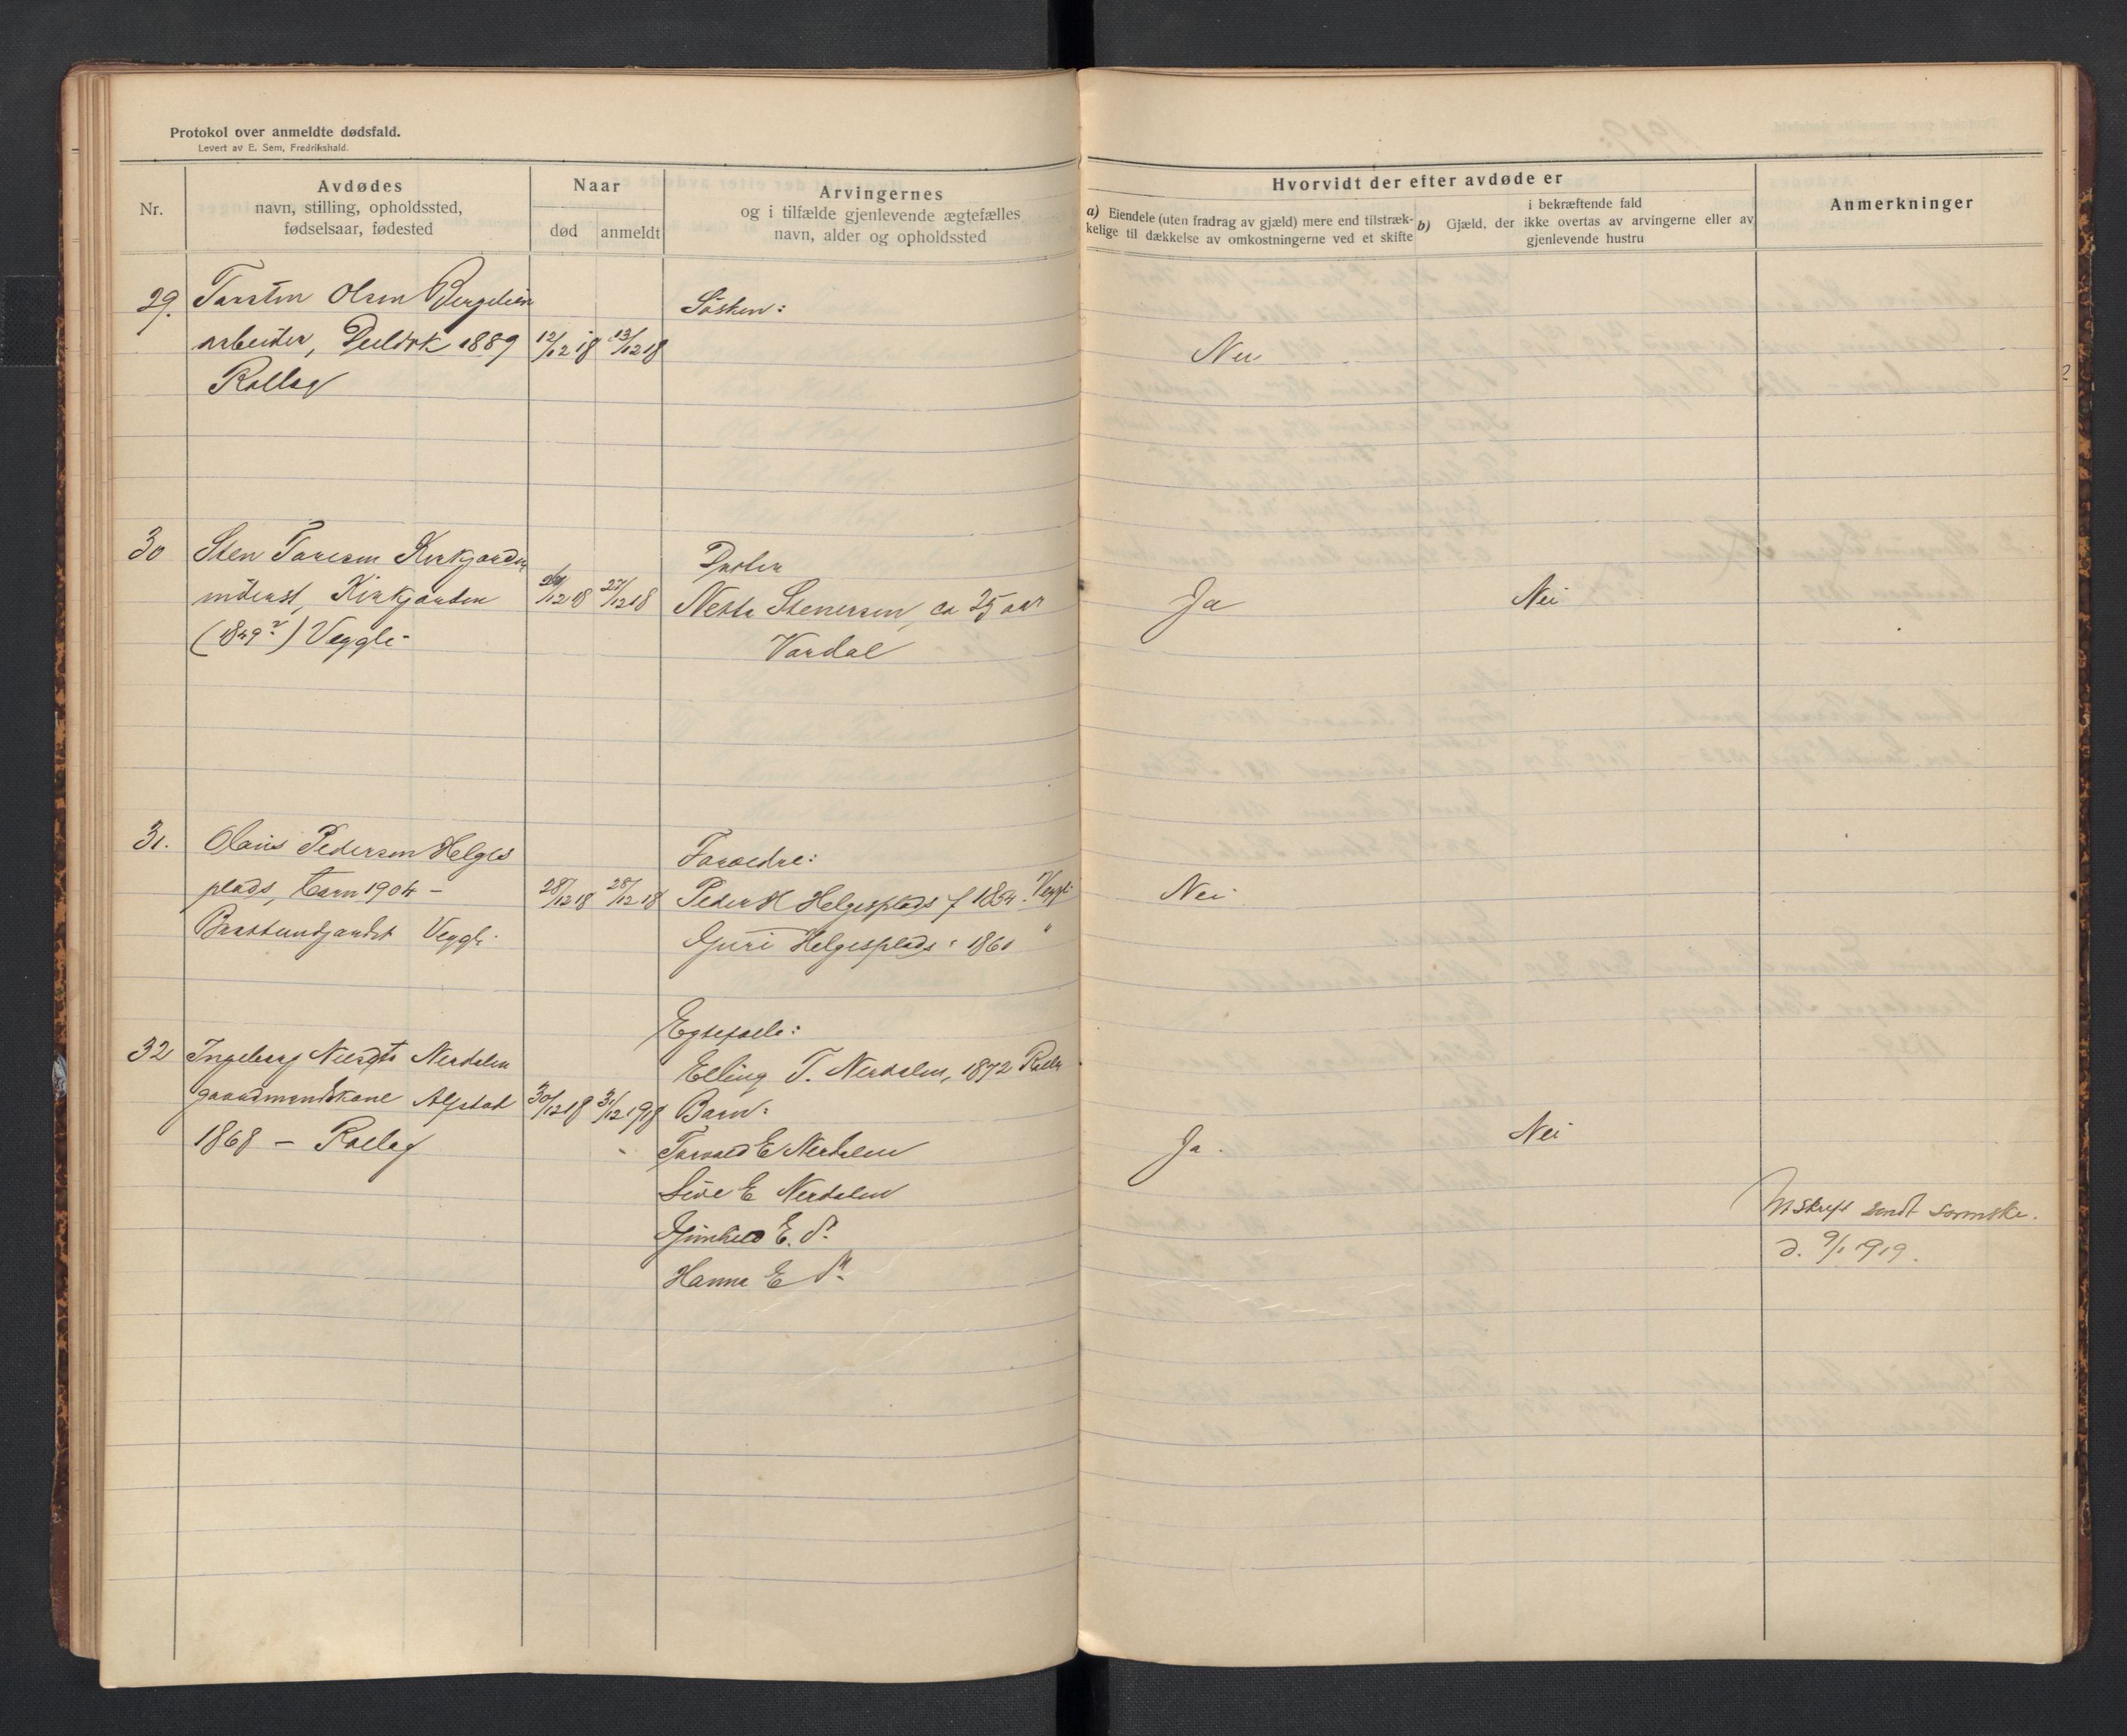 Protokol over anmeldte dødsfald.
Levert av E. Sem, Fredrikshald.
Nr.
Avdødes
navn, stilling, opholdssted,
fødselsaar, fødested
Naar
død
anmeldt
Arvingernes
og i tilfælde gjenlevende ægtefælles
navn, alder og opholdssted
Hvorvidt der efter avdøde er
a) Eiendele (uten fradrag av gjæld) mere end tilstræk-
kelige til dækkelse av omkostningerne ved et skifte
i bekræftende fald
b) Gjæld, der ikke overtas av arvingerne eller av
gjenlevende hustru
Anmerkninger
29. Torsten Olsen Bergelien
arbeider, 1889
Rollag
12/12 18 13/12 18
Søsken:
Nei
30 Sten Toresen Kirkjorden
inderst, Kirkjorden
(1849?) Veggli
/12 18 27/12 18
Datter
Stenersen, ca 25 aar
Vardal
Ja
Nei
31. Olaus Pedersen Helges
plads, barn 1904 –
Veggli
28/12 18 28/12 18
Foræedre:
Peder H Helgesplads f 1854. Veggli
Guri Helgesplads " 1860 "
Nei
32 Ingeborg Nerdalen
gaardmandskone
1868 – Rollag
30/12 18 31/12 1918
Egtefælle:
Elling T. Nerdalen, 1872
Barn:
Torvald E Nerdalen
Live E Nerdalen
Gunhild E. do
Hanna E do
Ja.
Nei
Utskrift sendt
d. 9/1 1919.